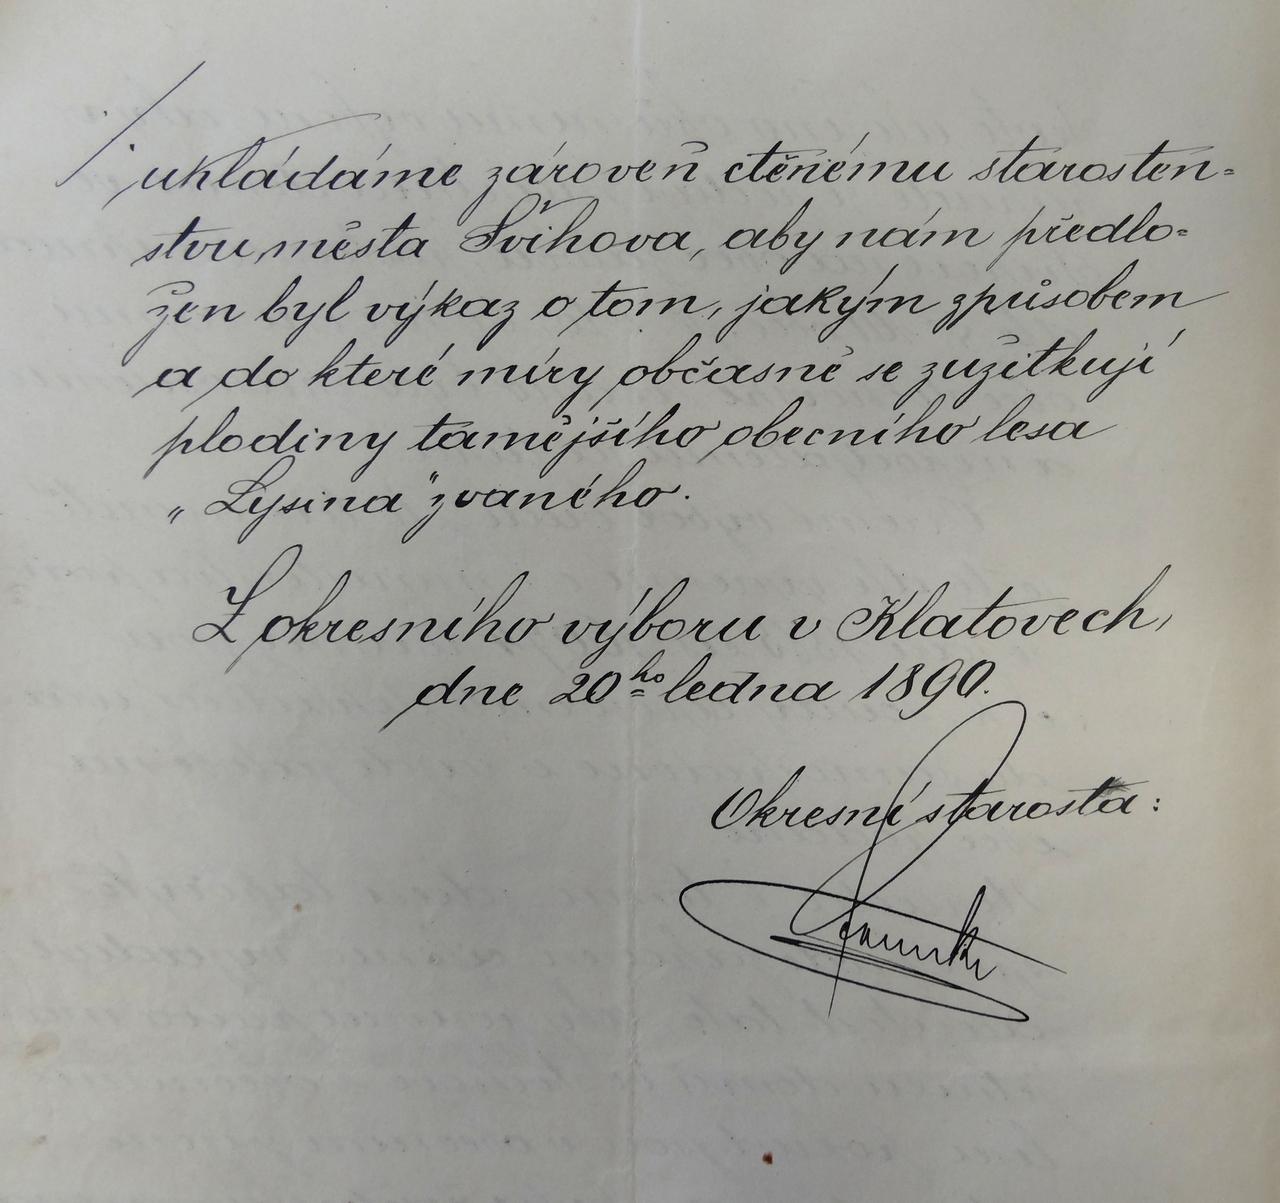 ukládáme zároveň ctěnému starosten-
stvu města Švihova, aby nám předlo-
žen byl výkaz o tom, jakým způsobem
a do které míry občasně se zužitkují
plodiny tamějšího obecního lesa
„Lysina" zvaného.
Z okresního výboru v Klatovech,
dne 20ho ledna 1890.
Okresní starosta: